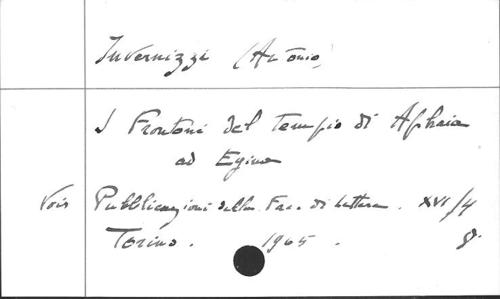 Invernizzi (Antonio)
I Frontoni del tempio di Aphaia
ad Egina
Voir Pubblicazioni della Fac. di Lettere. XVI/4
Torino. 1965. 8°.